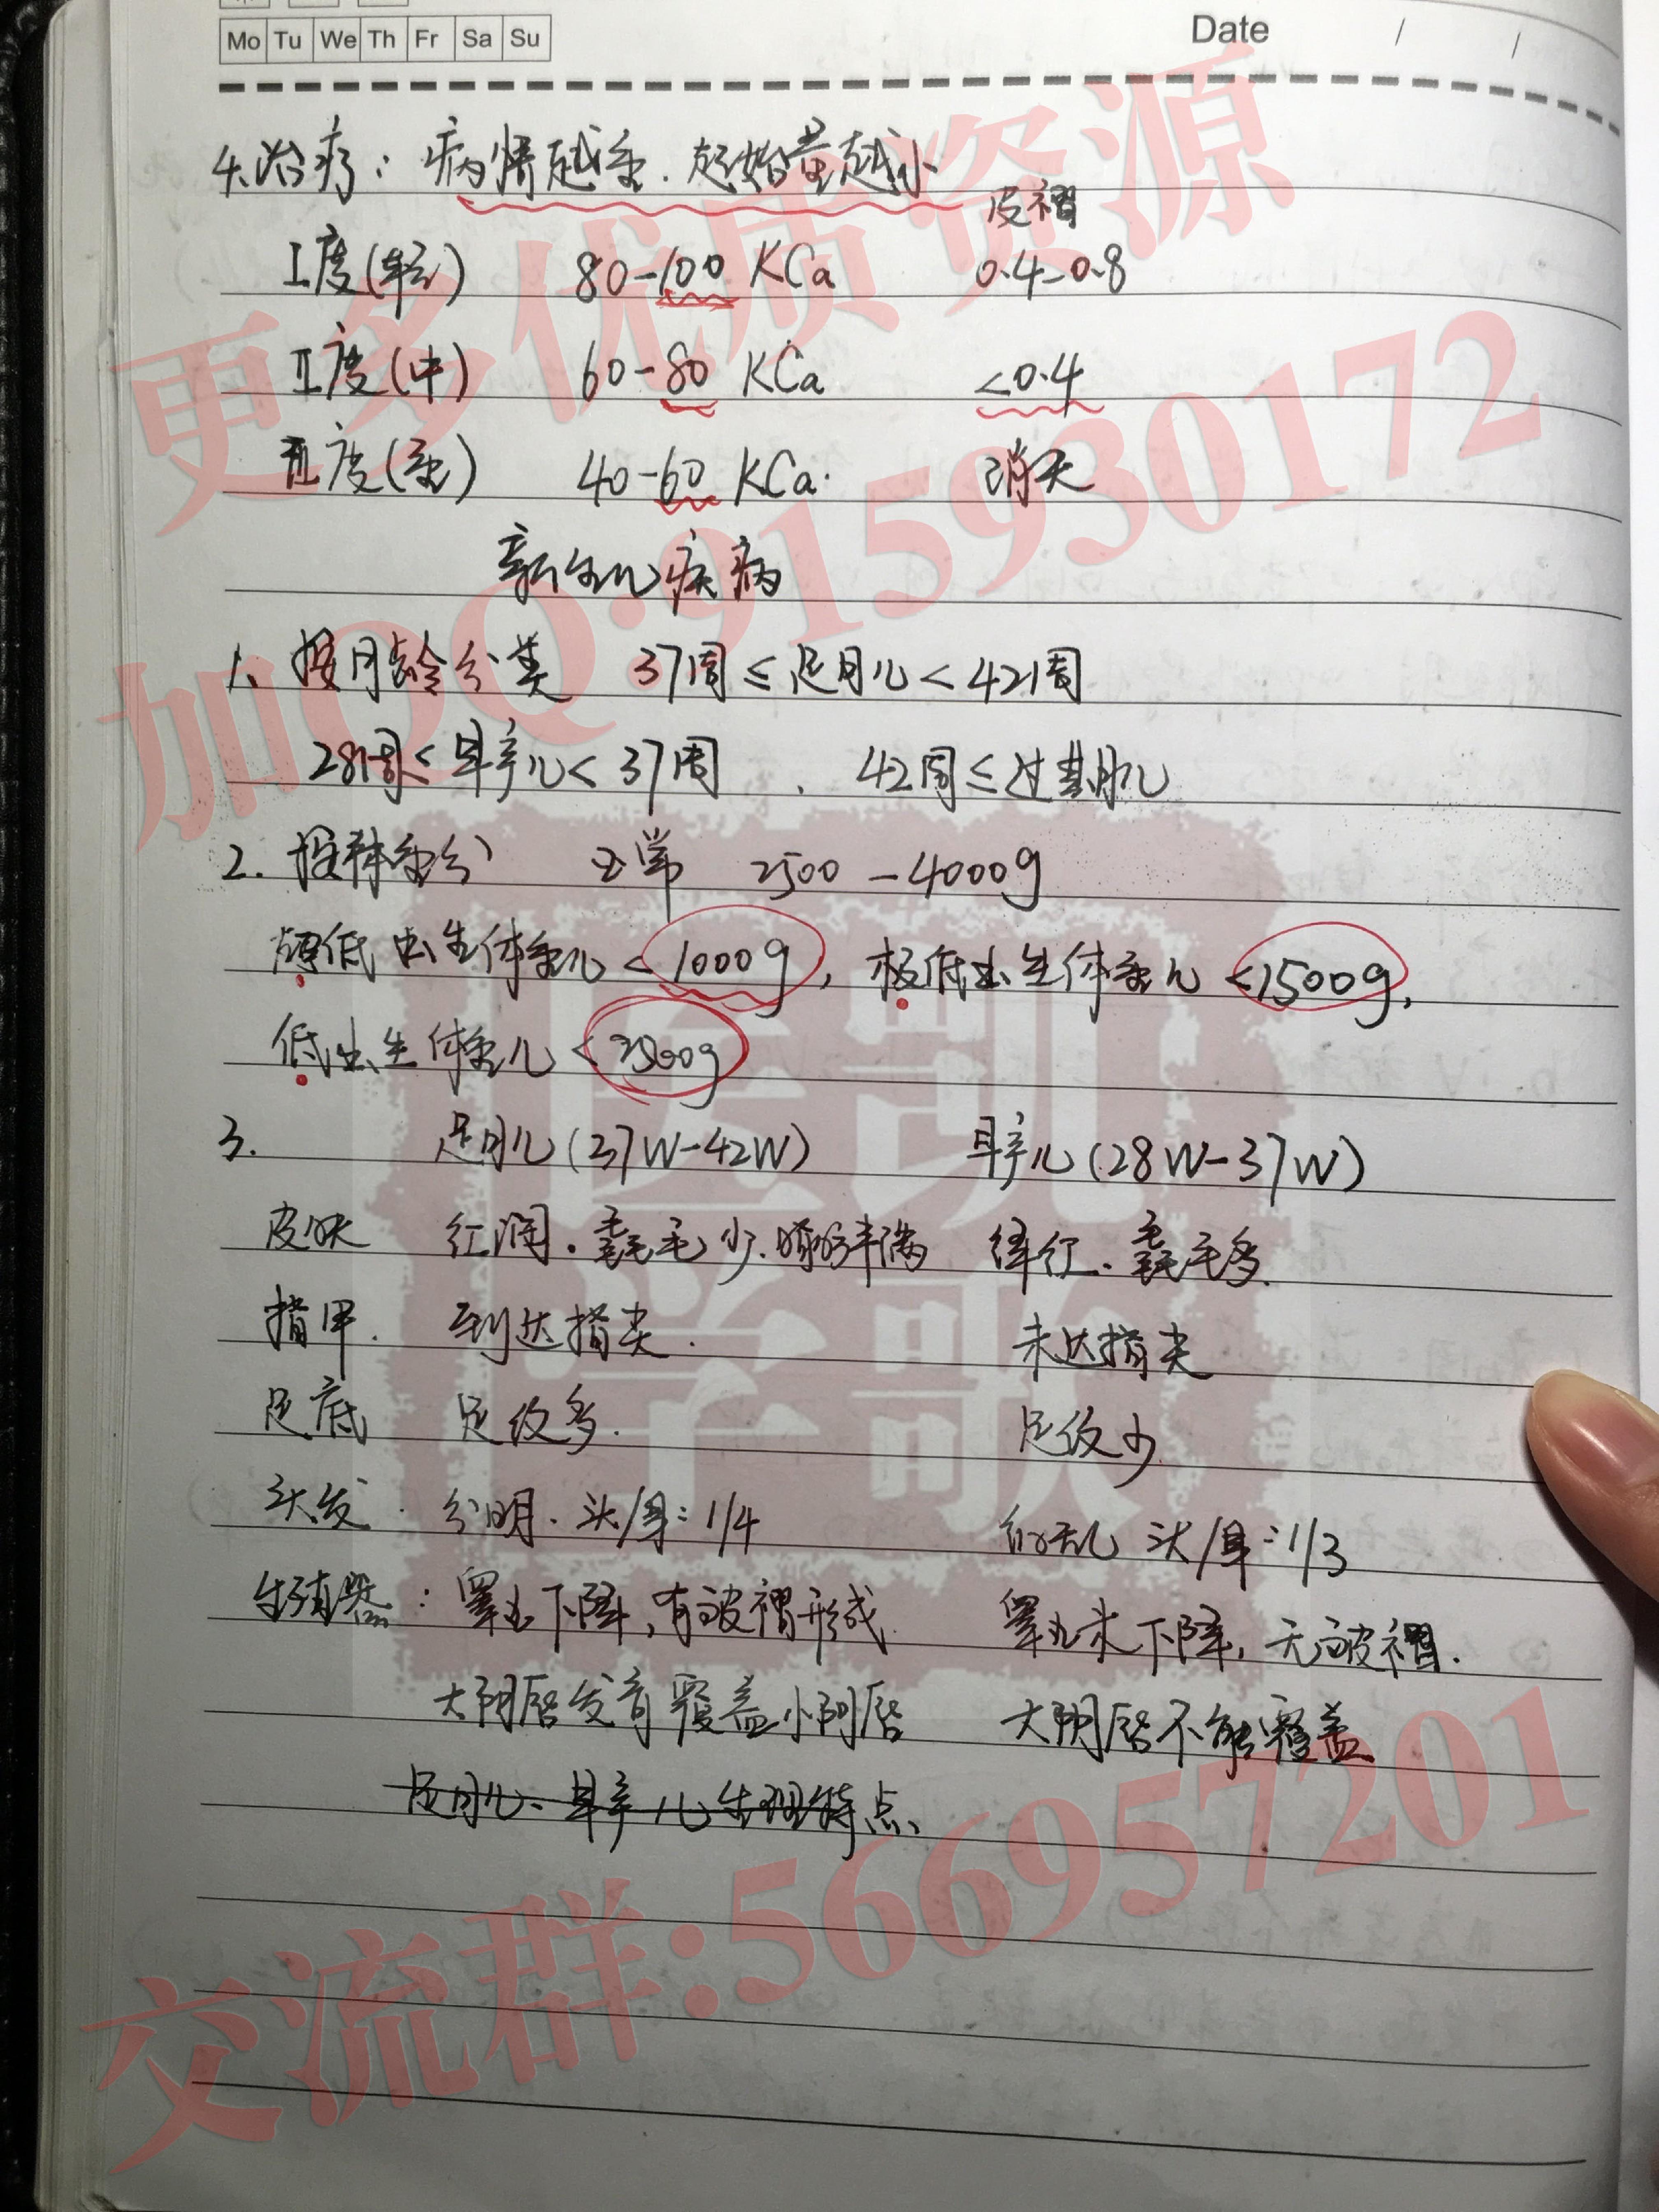 Mo Tu We Th Fr Sa Su
Date / /
4.治疗：病情越重.起始量越小
皮褶
I度(轻) 80-100 KCa 0.4-0.8
II度(中) 60-80 KCa <0.4
III度(重) 40-60 KCa. 消失
新生儿疾病
1、按月龄分类 37周≤足月儿<42周
28周≤早产儿<37周 、 42周≤过期儿
2. 按体重分 正常 2500-4000g
超低出生体重儿<1000g, 极低出生体重儿<1500g,
低出生体重儿<2500g
3. 足月儿(37W-42W) 早产儿(28W-37W)
皮肤 红润.毳毛少. 丰满 绛红、毳毛多.
指甲. 到达指尖. 未达指尖
足底 足纹多. 足纹少
头发. 分明. 头/身:1/4 乱 头/身:1/3
生殖器: 睾丸下降,有皱褶形成 睾丸未下降,无皱褶.
大阴唇发育覆盖小阴唇 大阴唇不能覆盖
足月儿、早产儿生理特点、
更多优质资源
加QQ:915930172
医凯
学歌
交流群:566957201